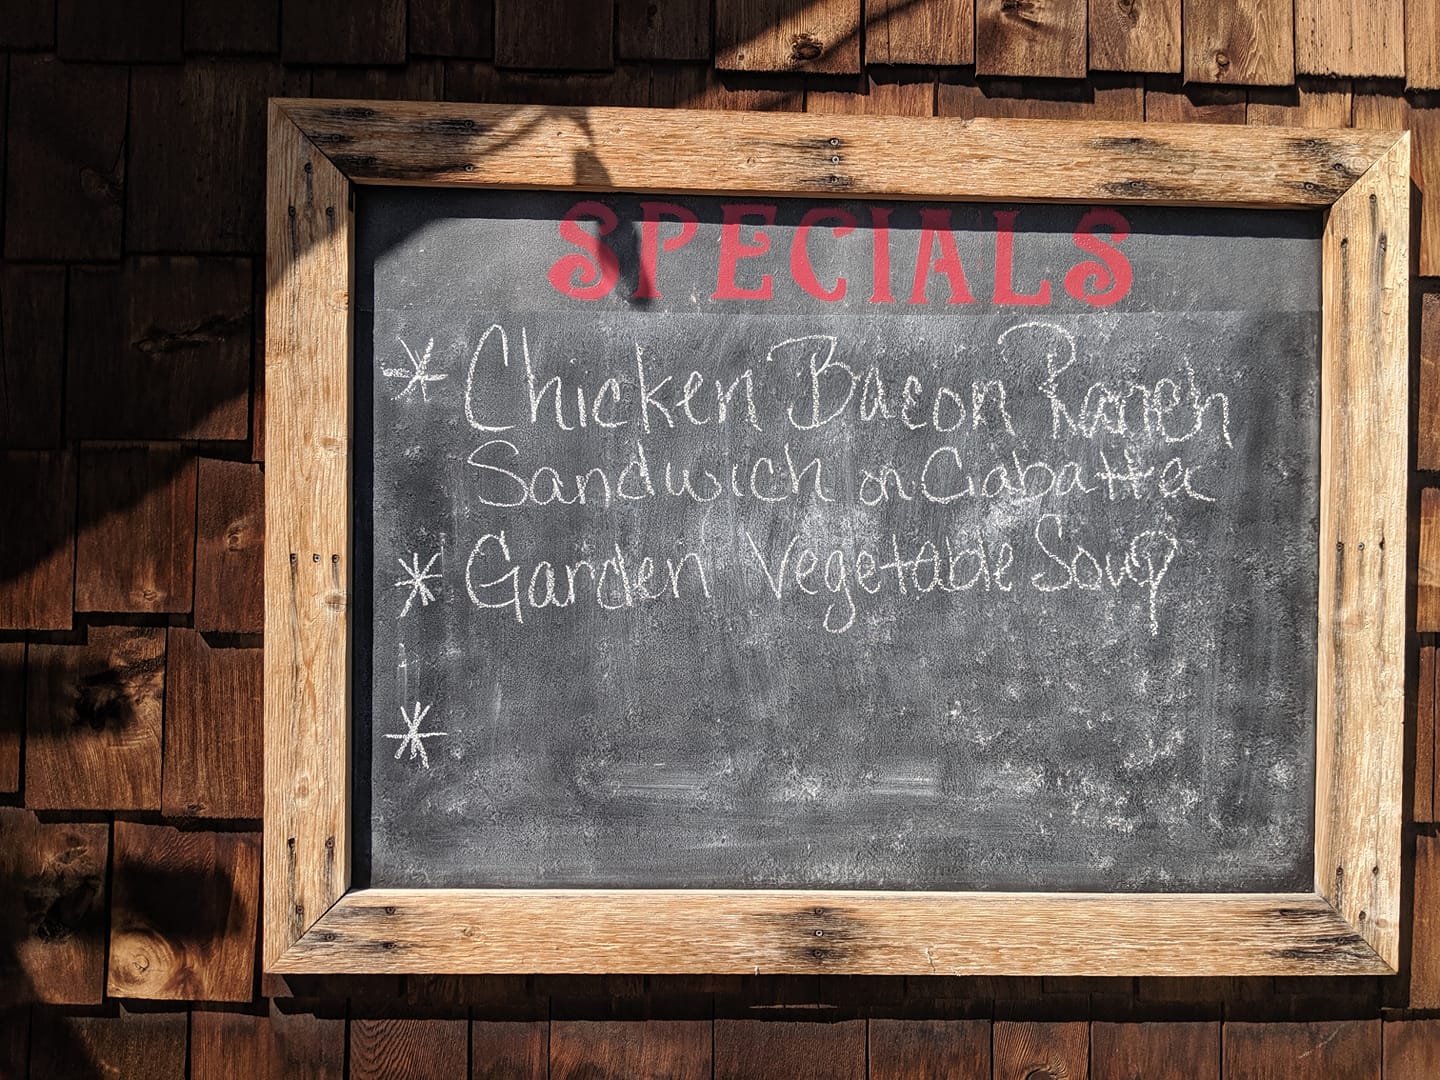 SPECIALS
* Chicken Bacon Ranch
Sandwich on Ciabatta
* Garden Vegetable Soup
*